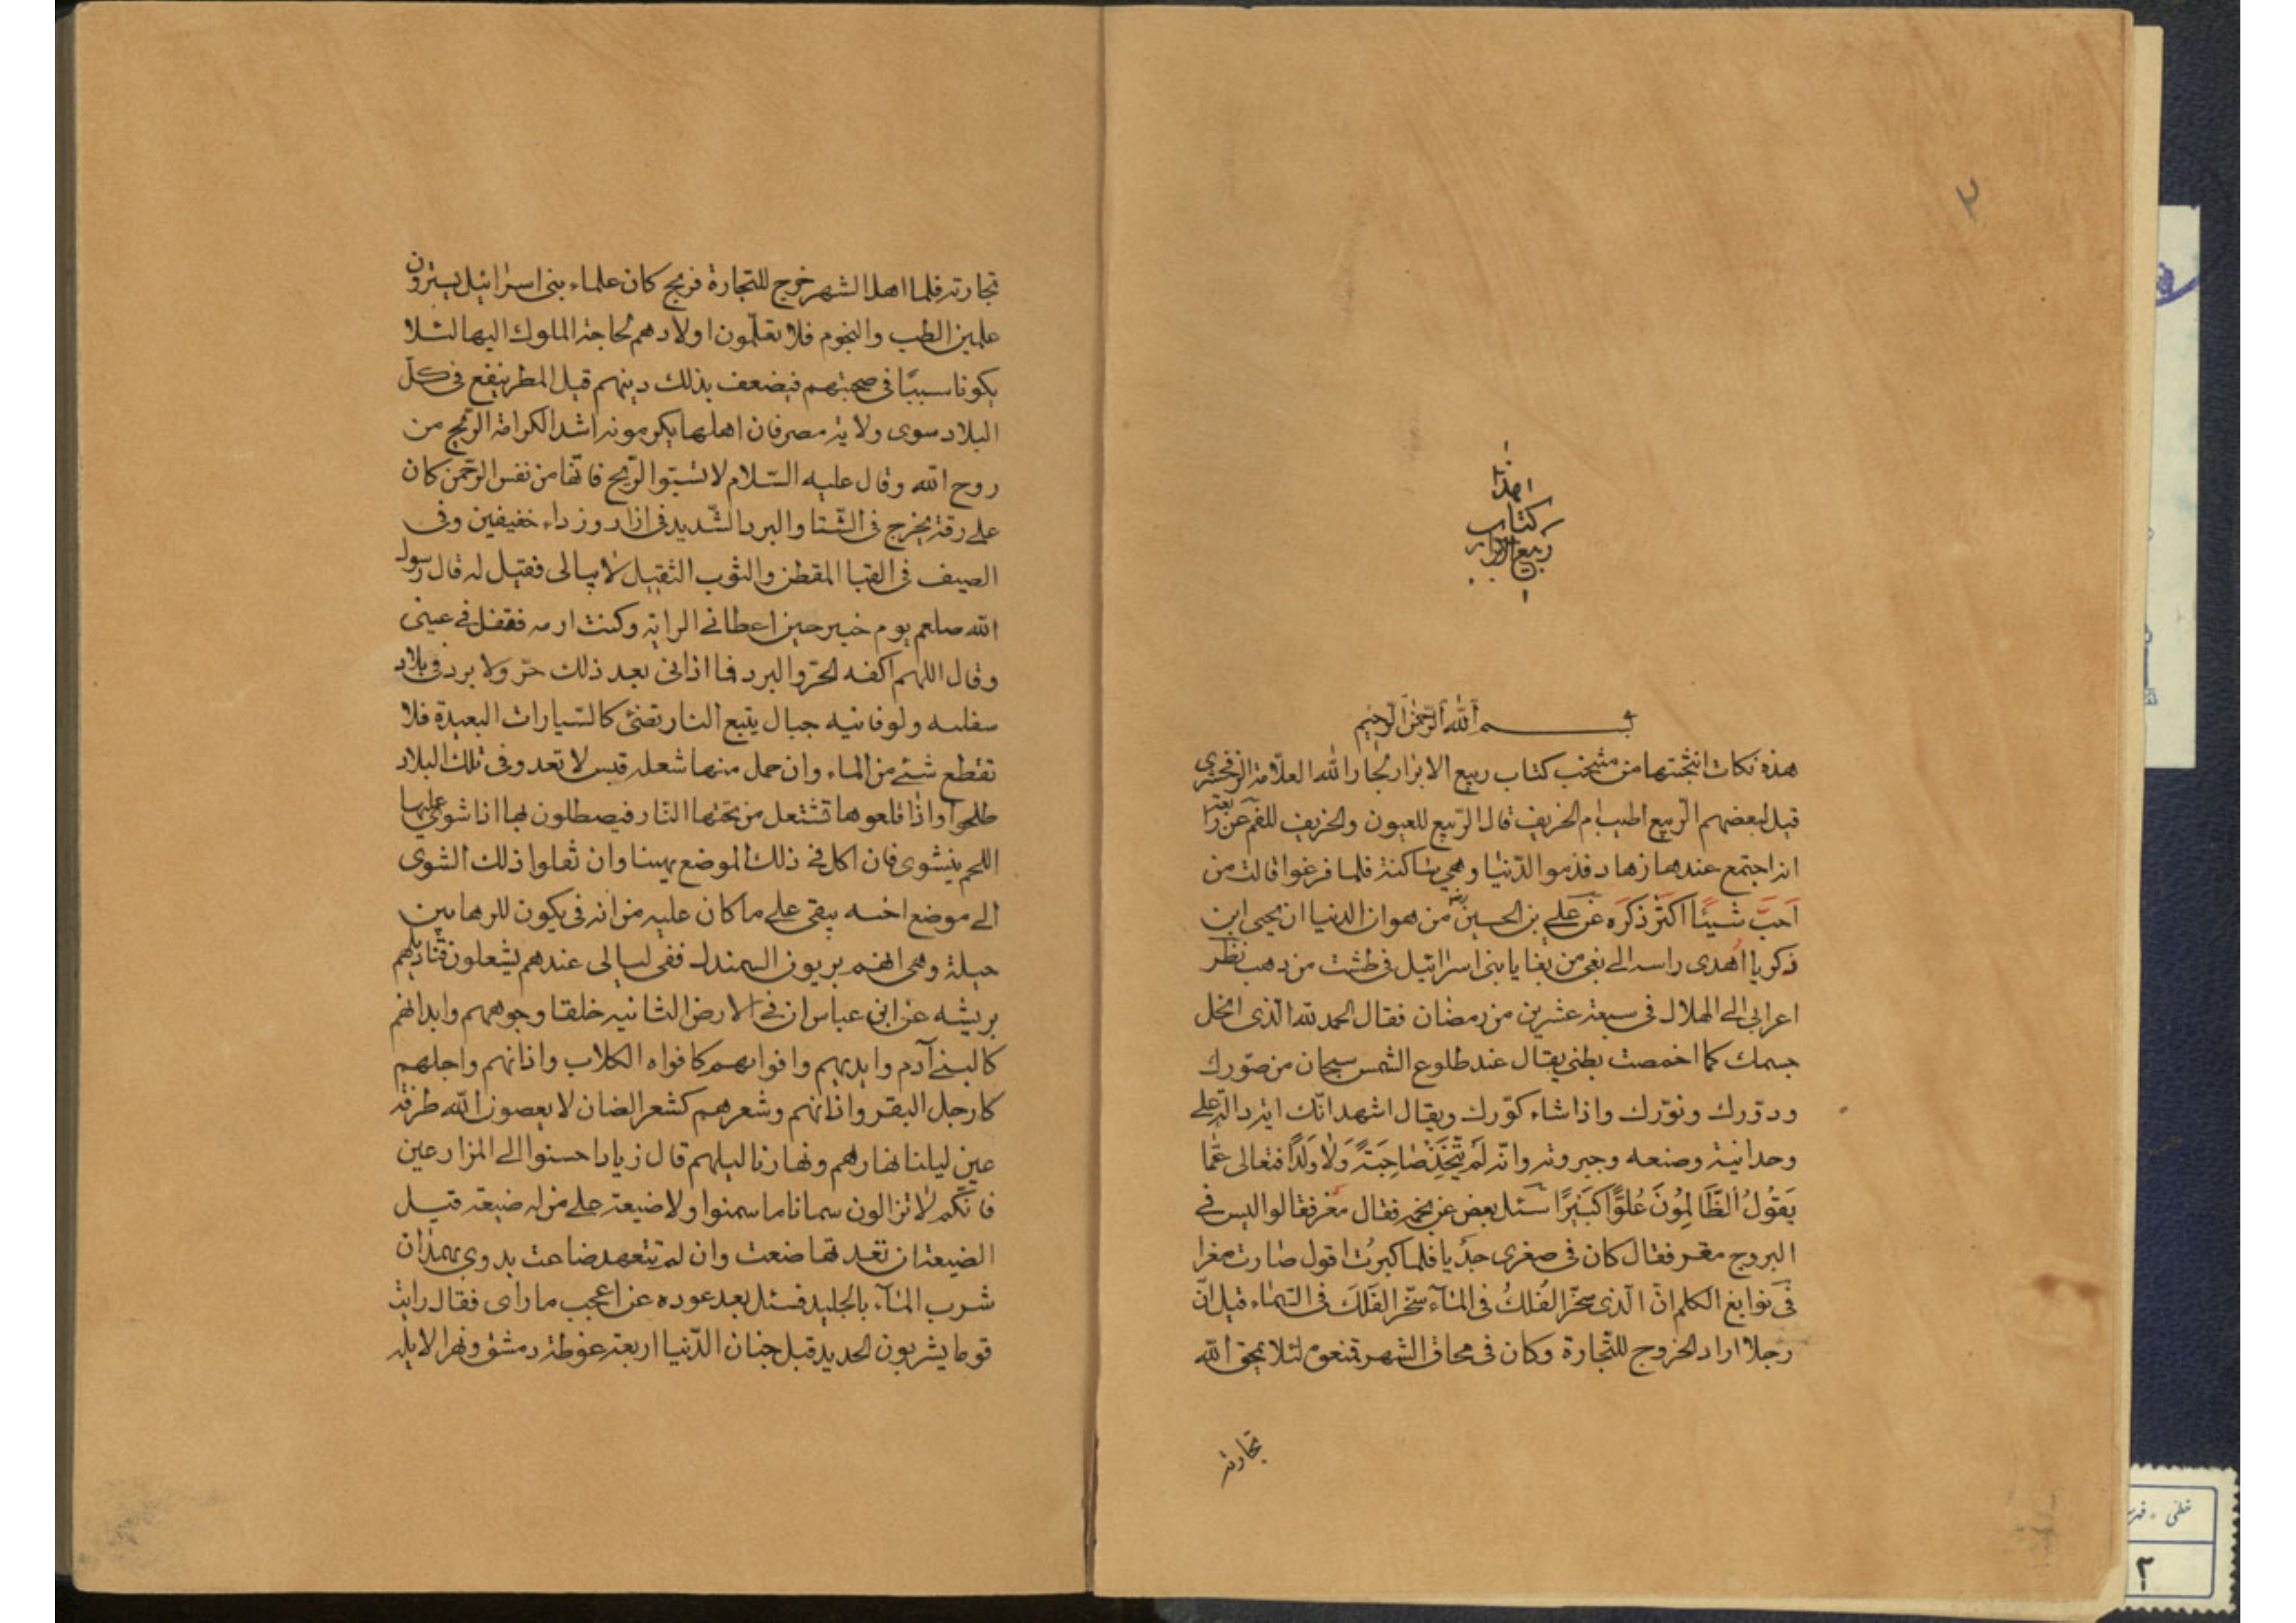 ٢
هذا
كتاب
ربيع الابرار
بسم الله الرحمن الرحيم
هذه نكات انتخبتها من منتخب كتاب ربيع الابرار لجار الله العلّامة الزمخشرى
قيل لبعضهم الرّبيع اطيب ام الخريف قال الرّبيع للعيون والخريف للفم عن رابعة
انه اجتمع عندها زهاد فذموا الدّنيا وهى ساكتة فلما فرغوا قالت من
اَحبَّ شَيئًا اكثَر ذكَره عَن على بن الحسين رض من هوان الدنيا ان يحيى ابن
زكريا اُهدى راسه الى بغى من بغايا بنى اسرائيل فى طشت من ذهب نظر
اعرابى الى الهلال فى سبعة عشرين من رمضان فقال الحمد لله الّذى انحل
جسمك كما اخمصت بطنى يقال عند طلوع الشمس سبحان من صّورك
ودوّرك ونوّرك واذا شاء كوّرك ويقال اشهد انّك اية دالّة على
وحدانية وصنعه وجبروته وانّه لَم يَتَّخِذ صَاحِبَةً وَلَا وَلَدًا فتعالى عَمّا
يَقُولُ الظَّالِمُونَ عُلوًّا كَبيرًا سئل بعض عن نجمه فقال مغر فقالوا ليس فى
البروج مغر فقال كان فى صغرى جَدْيا فلما كبرتُ اقول صارت مغرا
فى نوابغ الكلم انّ الّذى سخّر الفُلكُ فى المآء سخّر الفَلَكَ فى السّماء قيل انّ
رجلا اراد الخروج للتّجارة وكان فى محاق الشهر فمنعوه لئلا يمحق الله
تجارته
تجارته فلما اهل الشهر خرج للتجارة فربح كان علماء بنى اسرائيل يسترون
علمين الطب والنجوم فلا تعلّمون اولادهم لحاجة الملوك اليها لئلا
يكونا سببًا فى صحبتهم فيضعف بذلك دينهم قيل المطر ينفع فى كلّ
البلاد سوى ولاية مصر فان اهلها يكرمونه اشد الكرامة الرّيح من
روح الله وقال عليه السّلام لا تسبّوا الرّيح فانّها من نفس الرّحمن كان
على رقة يخرج فى الشّتا والبرد الشّديد فى ازار ورداء خفيفين وفى
الصيف فى القبا المقطن والثوب الثقيل لا يبالى فقيل له قال رسول
الله صلعم يوم خيبر حين اعطانى الراية وكنت ارمد فتفل فى عينى
وقال اللهم اكفه الحرّ والبرد فما اذانى بعد ذلك حرّ ولا برد فى بلاد
سفلسه ولوفانيه جبال ينبع النار تضئ كالسّيارات البعيدة فلا
تقطع شئ من الماء وان حمل منها شعله قبس لا تعد وفى تلك البلاد
طلحوا واذا قلعوها تشتعل من تحتها النّار فيصطلون بها اذا شوى عليها
اللحم ينشوى فان اكل فى ذلك الموضع يهيئنا وان نقلوا ذلك الشوى
الى موضع اخر يبقى على ما كان عليه من انه فى يكون للرهابين
حيلة وهى انهم يربون السمندل ففى ليالى عندهم يشعلون قناديلهم
بريشه عن ابن عباس ان فى الارض الثانيه خلقا وجوههم وابدانهم
كالبنى آدم وايديهم وافواههم كافواه الكلاب واذانهم وارجلهم
كارجل البقر واذانهم وشعرهم كشعر الضان لا يعصون الله طرفة
عين ليلنا نهارهم ونهارنا ليلهم قال زياد احسنوا الى المزارعين
فانّكم لا تزالون سمانا ما سمنوا ولا ضيعة على من له ضيعة قيل
الضيعة ان تعهدتها ضعت وان لم تتعهد ضاعت بدوى بهمدان
شرب المآء بالجليد فسئل بعد عوده عن اعجب ما راى فقال رايت
قوما يشربون الحديد قيل جنان الدّنيا اربعة غوطة دمشق ونهر الابله
٢